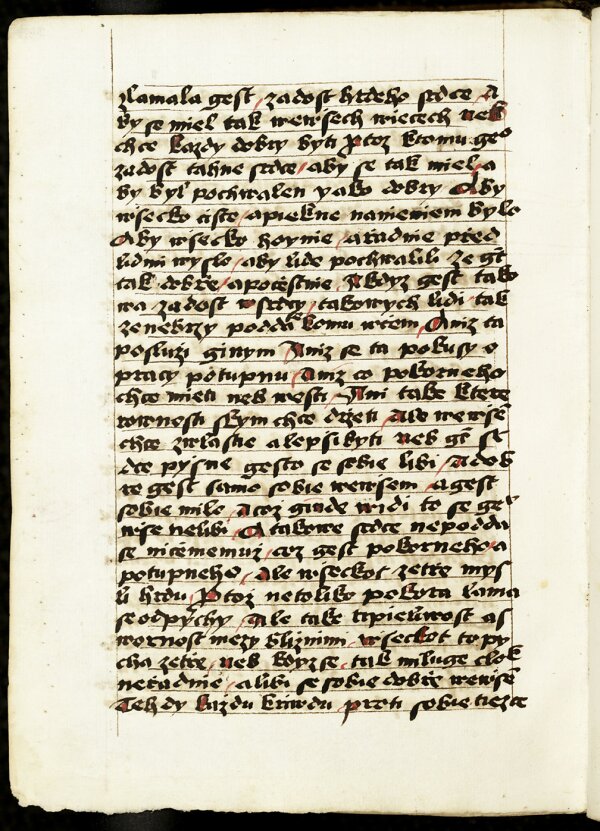 zlamala gest / zadost hrdeho srdce A
by se miel tak wewssech wiecech neb
chce kazdy dobry byti Ptoz ktomu geo
zadost tahne srdce / aby se tak miel / a
by byl pochwalen yako dobry Aby
wsecko ciste / apiekne namieniem bylo
Aby wsecko hoynie / aradnie před
lidmi wyslo / aby lide pochwalili ze gt
tak dobře / apoctstnie Akdyz gest tako
wa zadost wsrdcy / takowych lidi / tak
zenebrzy podda komu wtem / Aniz ta
posluzi ginym Aniz se ta pokusy o
pracy potupnu / Aniz co pokorneho
chce mieti neb westi / Ani take ktere
rownosti skym chce držeti Ale wewsē
chce zwlastie a lepsi byti Neb gt sr
dce pysne gesto se sobie libi / Adob
re gest samo sobie wewsem / agest
sobie milo / Acoz ginde widi to se ge
wse nelibi / A takowe srdce nepodda
se nicemmuz / coz gest pokorneho / a
potupneho / Ale wseckot / zetře mys
li hrdu / Ptoz netoliko pokora lama
se odpychy / Ale take trpieliwost as
wornost mezy bliznimi / wseckot to py
cha zetře / neb kdyz se / tak miluge clok
neradnie / alibi se sobie dobře wewsē
Tehdy kazdu kriwdu / proti sobie tiezce